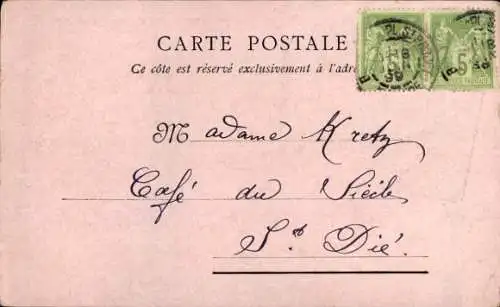 CARTE POSTALE
Ce côté est réservé exclusivement à l'adre
Madame Kretz
Café du Siècle
St Dié.